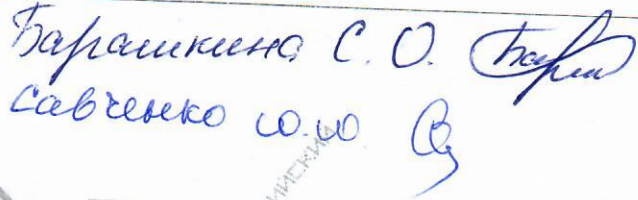 Барашкина С. О.
Савченко Ю.Ю